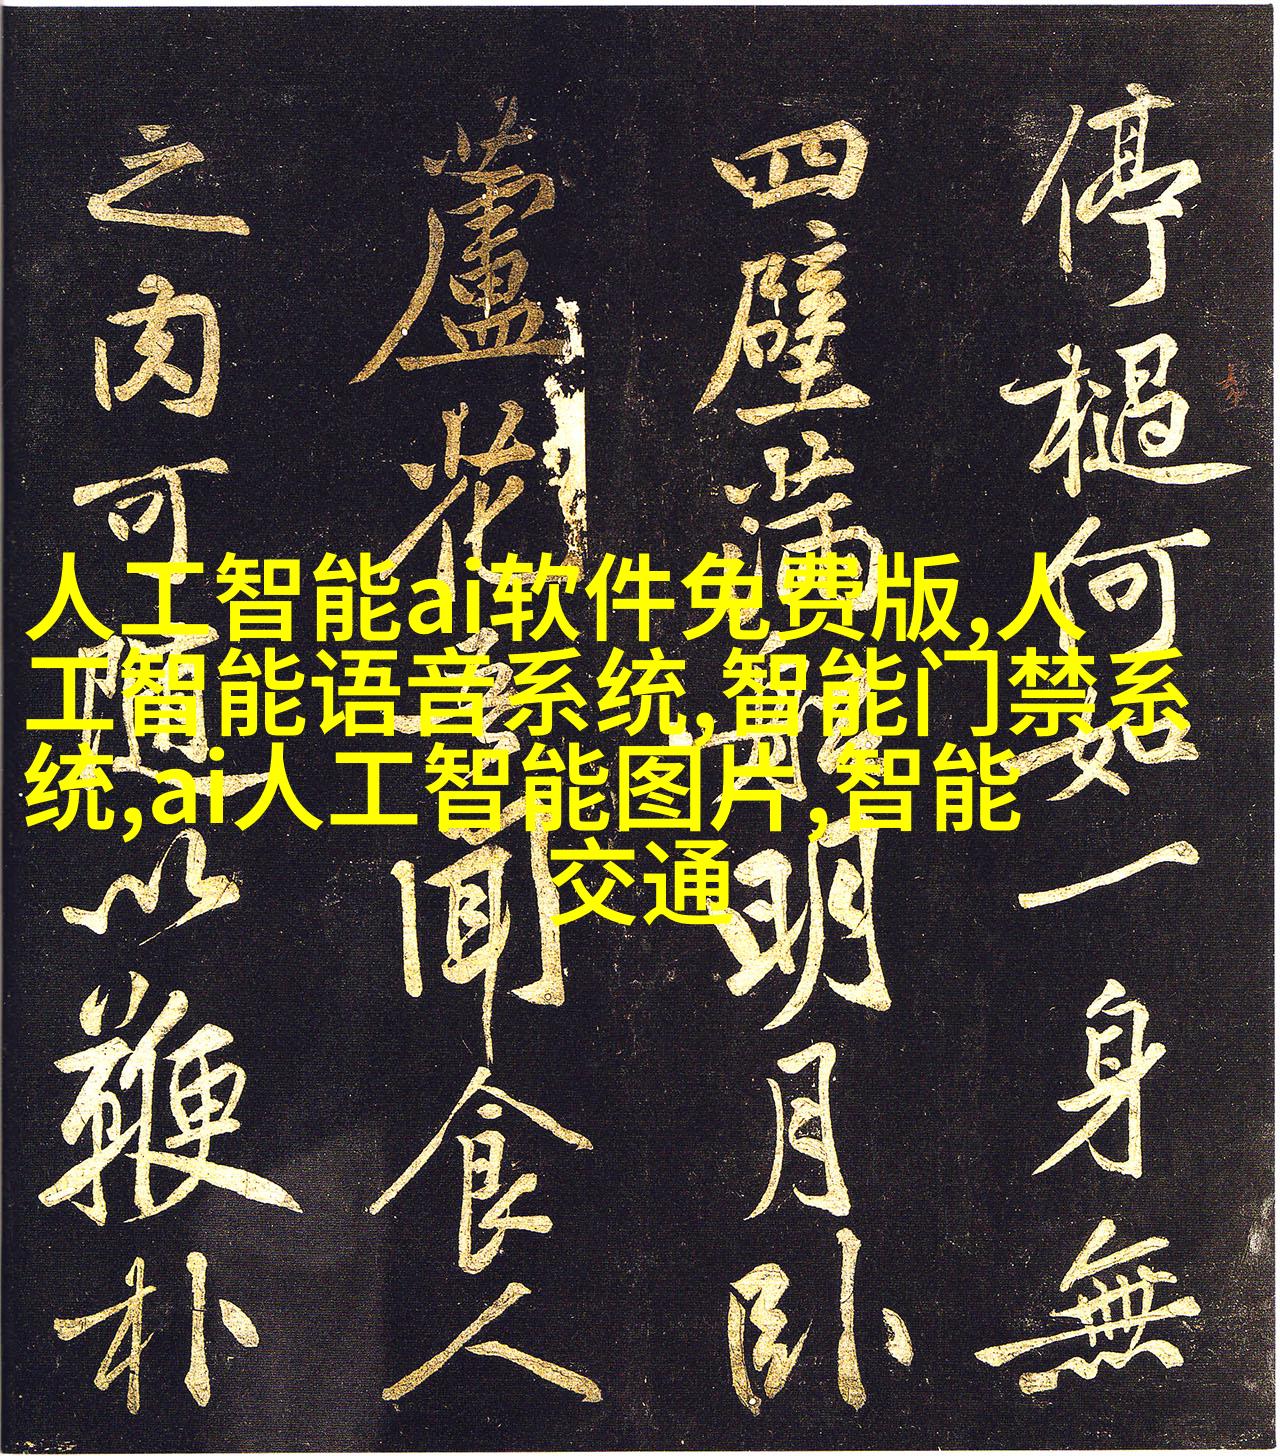 停檛何如一身無
四壁滿明月臥
蘆花聞食人
之肉可隨以鞭朴
人工智能ai软件免费版,人
工智能语音系统,智能门禁系
统,ai人工智能图片,智能
交通